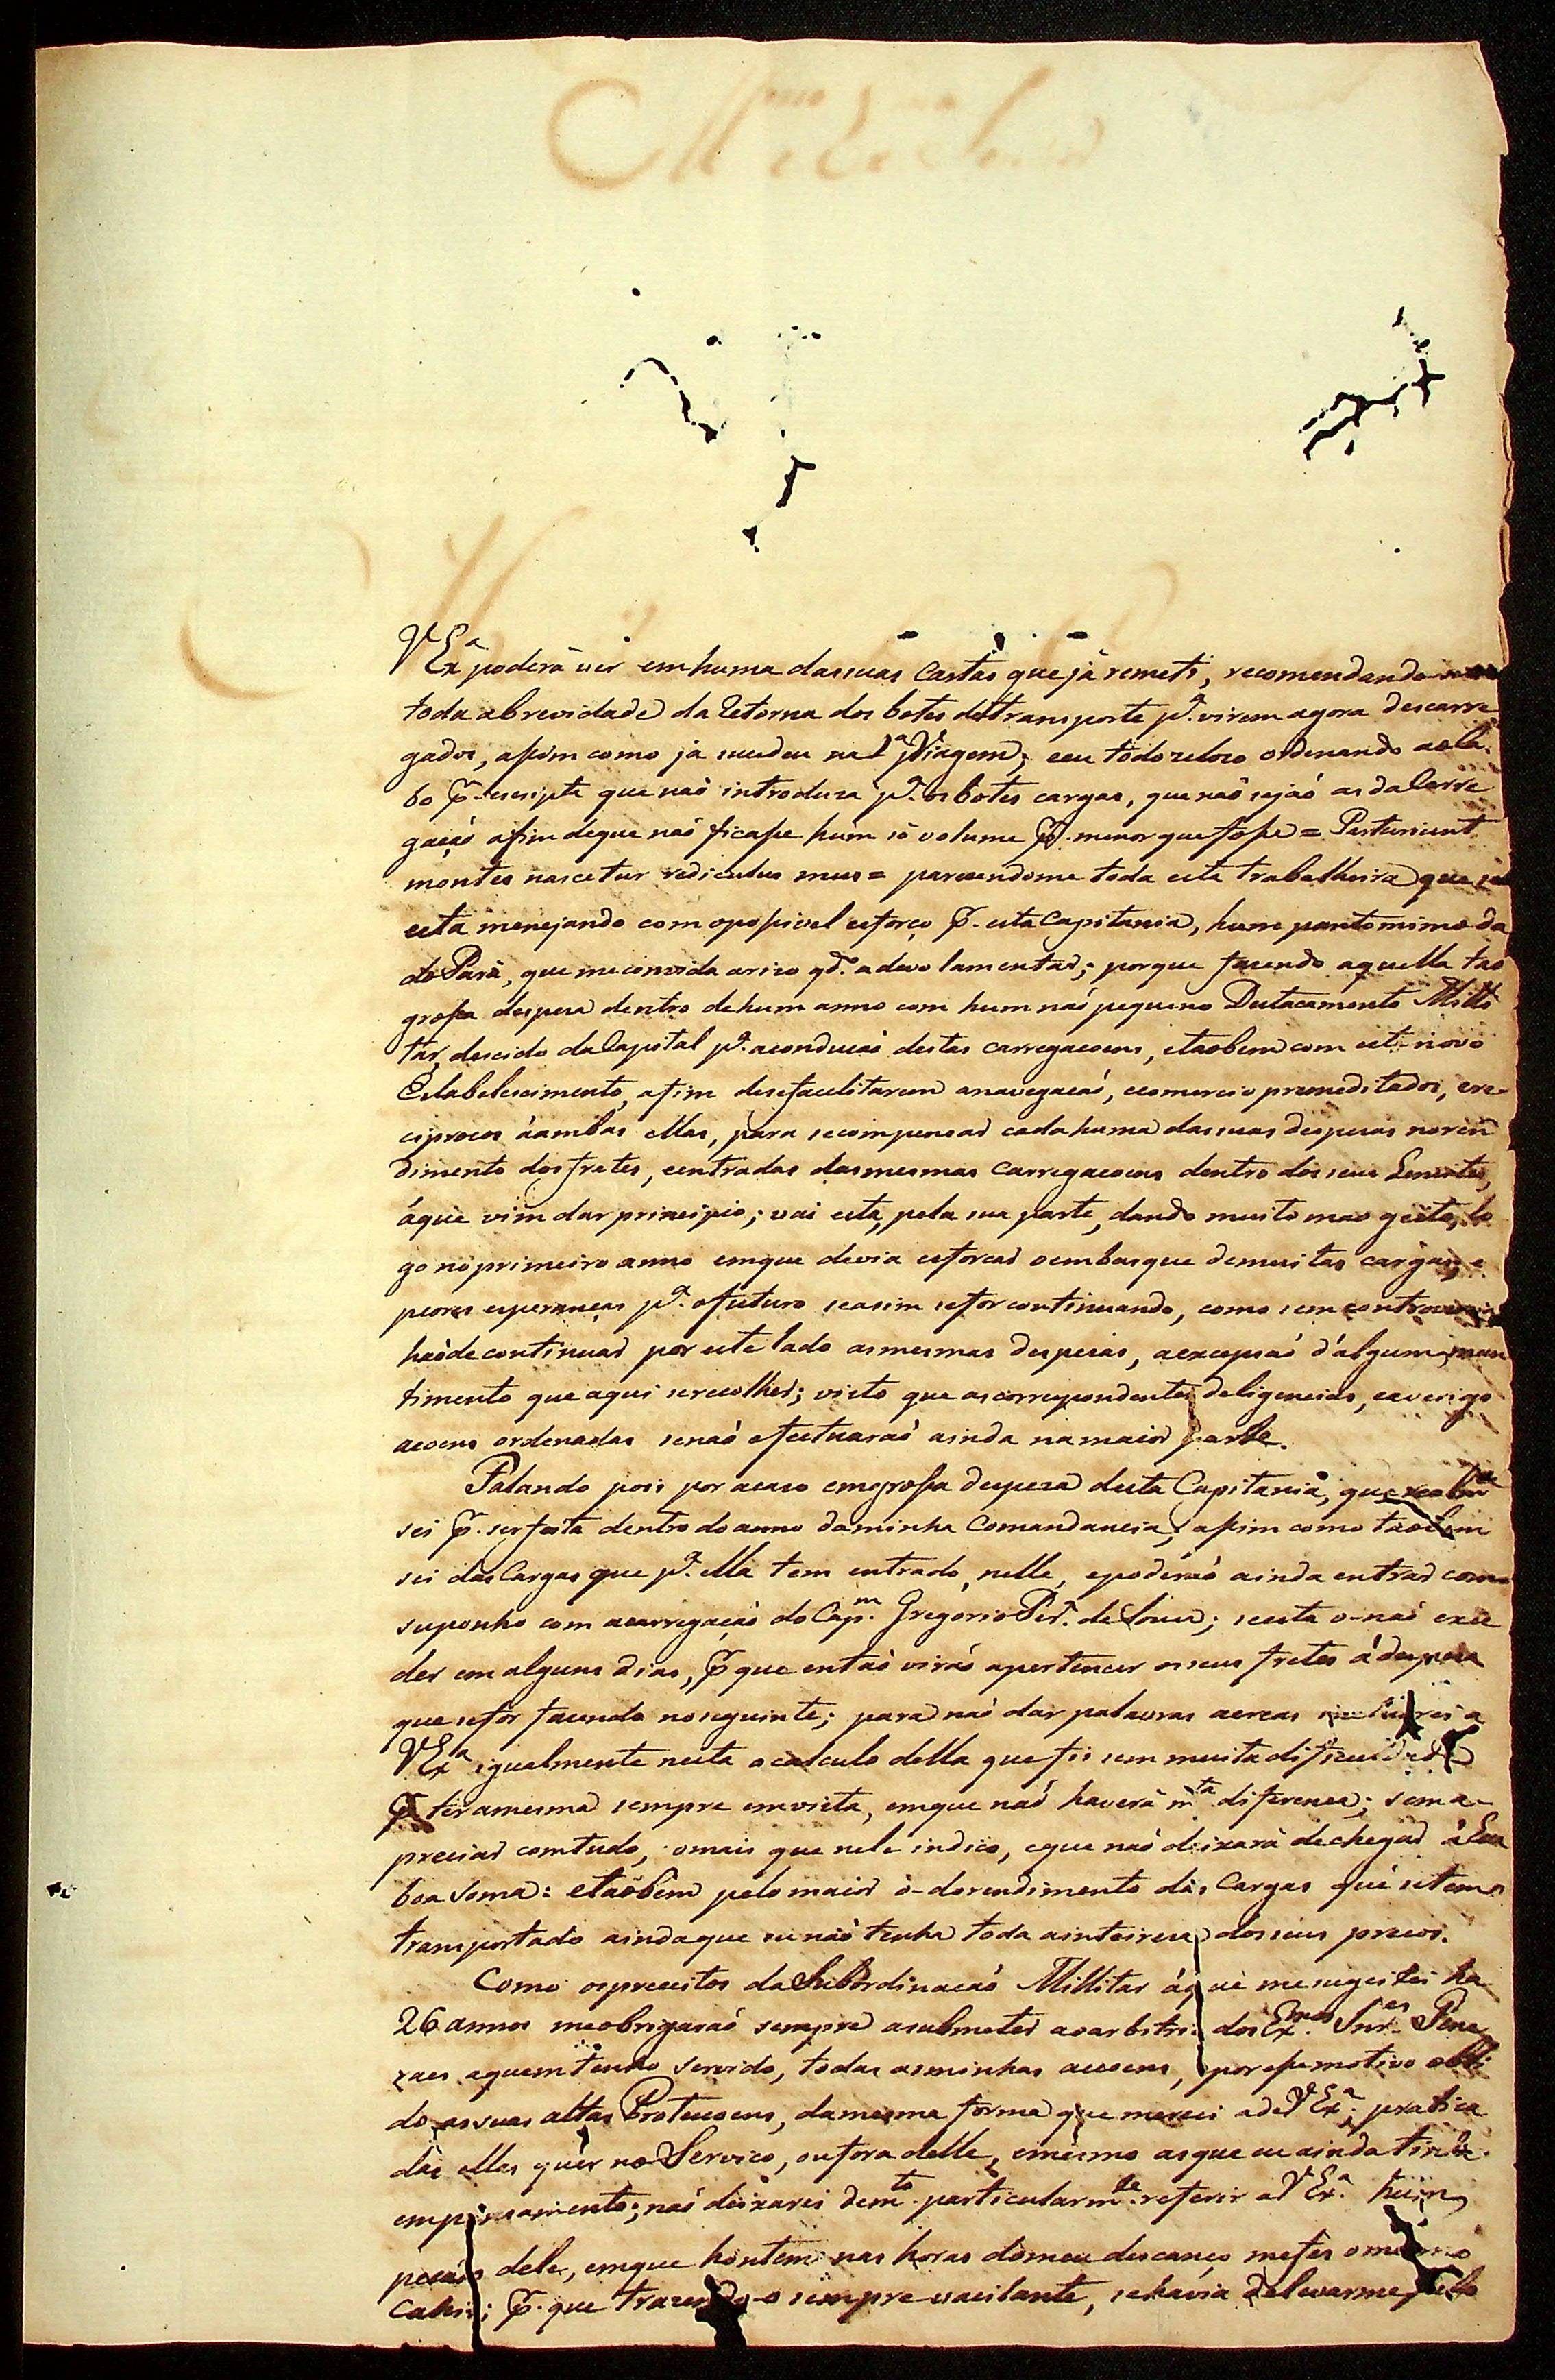 VEx.ª poderá ver em huma das suas Cartas que já remeti, recomendando
toda abrevidade da Retorna dos botes do transporte p.ª virem agora descarre
gados, assim como ja sucedeu na 1.ª Viagem; e eu todo zeloso ordenando ao Ca
bo p.r escripto que naó introduza p.ª os botes cargas, que naó sejaó as da Carre
gaçaó afim deque naó ficasse hum só volume p.r menor que fosse = Parturiunt
montes nascetur rediculus mus = parecendome toda esta trabalheira que se
está menejando com opossivel esforço p.r esta Capitania, hum pantomimo da
do Pará, que me convida arizo qd.º adevo lamentar; porque fazendo aquella tao
grossa despeza dentro dehum anno com hum naó pequeno Destacamento Milli
tar, descido da Capital p.ª aconduçaó destas carregacoens, etaobem com este novo
Estabelescimento, afim desefacilitarem anavegacaó, ecomercio premeditados, ere-
ciprocos áambas ellas, para recompensar cada huma das suas despezas noren
dimento dos fretes, eentradas das mesmas Carregacoens dentro dos seus Lemites,
áque vim dar principio; vai esta, pela sua parte, dando muito mao geito, lo
go no primeiro anno emque devia esforcar oembarque demuitas cargas, e
peores esperanças p.ª ofuturo seasim sefor continuando, como sem
haóde continuar por este lado asmesmas despezas, aexcepsaó d'algum man
timento que aqui serecolher; visto que ascorrespondentes deligencias, eaverigo
acoens ordenadas senaó efectuaraó ainda namaior parte.
Falando pois por acaso emgrossa despeza desta Capitania, que
sei p.r ser feita dentro do anno daminha Comandancia, assim como taobem
sei das Cargas que p.ª ella tem entrado, nelle, epoderaó ainda entrar como
suponho com acarregaçaó do Cap.m Gregorio Per.ª de Souza; se esta o-naó exce
der em alguns dias, p.r que entaó viraó apertencer os seus fretes ádespeza
que sefor fazendo noseguinte; para naó dar palavras aereas a
VEx.ª igualmente nesta ocalculo della que fis sem muita dificuldade
p.r ter amesma sempre em vista, emque naó haverá m.ta diferença; sem a-
preciar comtudo, omais que nele indico, eque naó deixará dechegar á
boa Soma: etaobem pelo maior o-do rendimento dás Cargas que setem
transportado aindaque eu naó tenha toda ainteireza dos seus precos.
Como ospreceitos da Subordinacaó Millitar áque mesugeitei ha
26 annos meobrigaraó sempre asubmeter aoarbitrio dos Ex.mos Snr.es Gene
raes aquem tenho servido, todas asminhas accoens, eporesse motivo obti
do assuas altas Protecoens, damesma forma que mereci ade VEx.ª, pratica
das ellas quer no Servico, oufora delle, emesmo asque eu ainda tinha
empensamento; naó deixarei dem.to particularm.te referir aVEx.ª hum
pedaço dele, emque hontem nas horas domeu descanço mefes omesmo
cahir; p.r que trazendo-o sempre vacilante, sehavia delevarme pelo